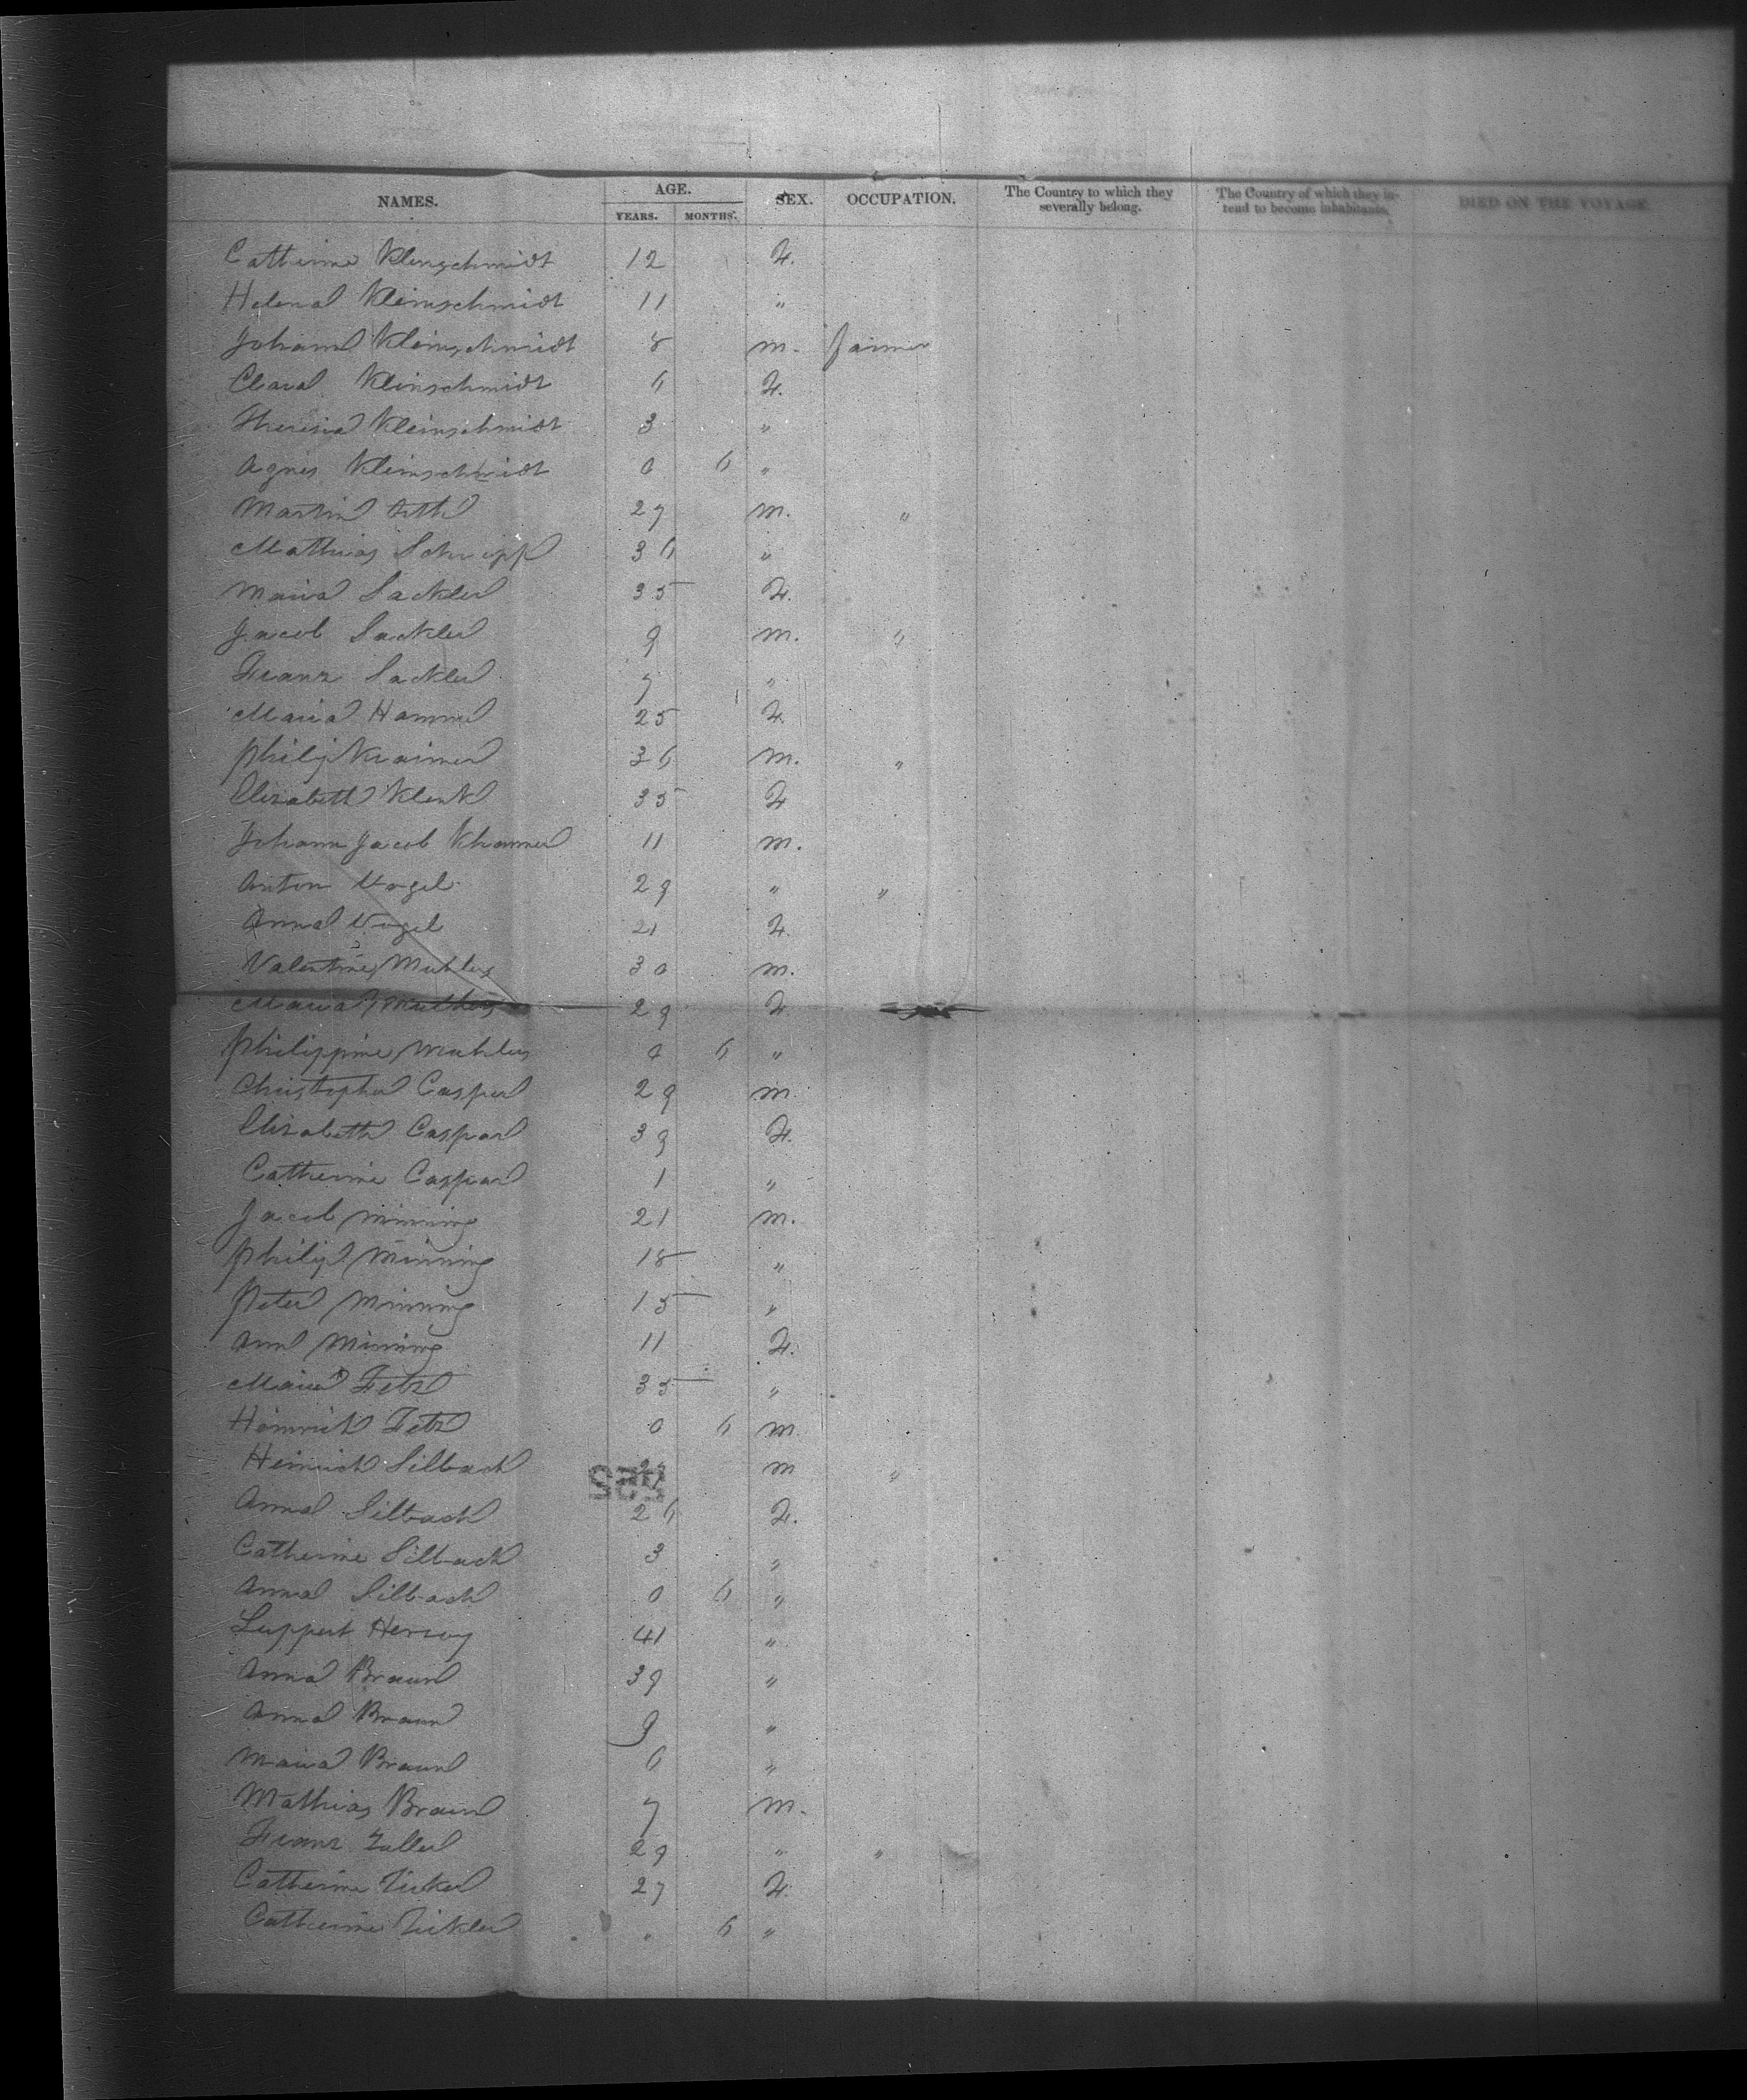 NAMES. AGE. SEX. OCCUPATION. The Country to which they severally belong. The Country of which they intend to become inhabitants. DIED ON THE VOYAGE
YEARS. MONTHS.
Catherine Kleinschmidt 12 F.
Helena Kleinschmidt 11 "
Johann Kleinschmidt 8 m. farmer
Clara Kleinschmidt 6 F.
Theresia Kleinschmidt 3 "
Agnes Kleinschmidt 0 6 "
Martin 27 m. "
Mathias Schnipp 36 "
Maria Sackler 35 F.
Jacob Sackler 9 m. "
Franz Sackler 7 "
Maria Hammer 25 F.
Philip Kraimer 36 m. "
Elizabeth Klenk 35 F
Johann Jacob Khammer 11 m.
Anton Vogel 29 " "
Anna Vogel 21 F.
Valentine Muhley 30 m.
Maria 29 F
Philippine Muhley 0 6 "
Christopher Casper 29 m.
Elizabeth Caspar 39 F.
Catherine Caspar 1 "
Jacob Minning 21 m.
Philip Minning 18 "
Peter Minning 15 "
Ann Minning 11 F.
Maria Fetz 35 "
Heinrich Fetz 0 6 m.
Heinrich Silbach m "
Anna Silbach 26 F.
Catherine Silbach 3 "
Anna Silbach 0 6 "
Luppert Herzog 41 "
Anna Braun 39 "
Anna Braun 9 "
Maria Braun 6 "
Mathias Braun 7 m.
Franz Zoller 29 " "
Catherine 27 F.
Catherine " 6 "